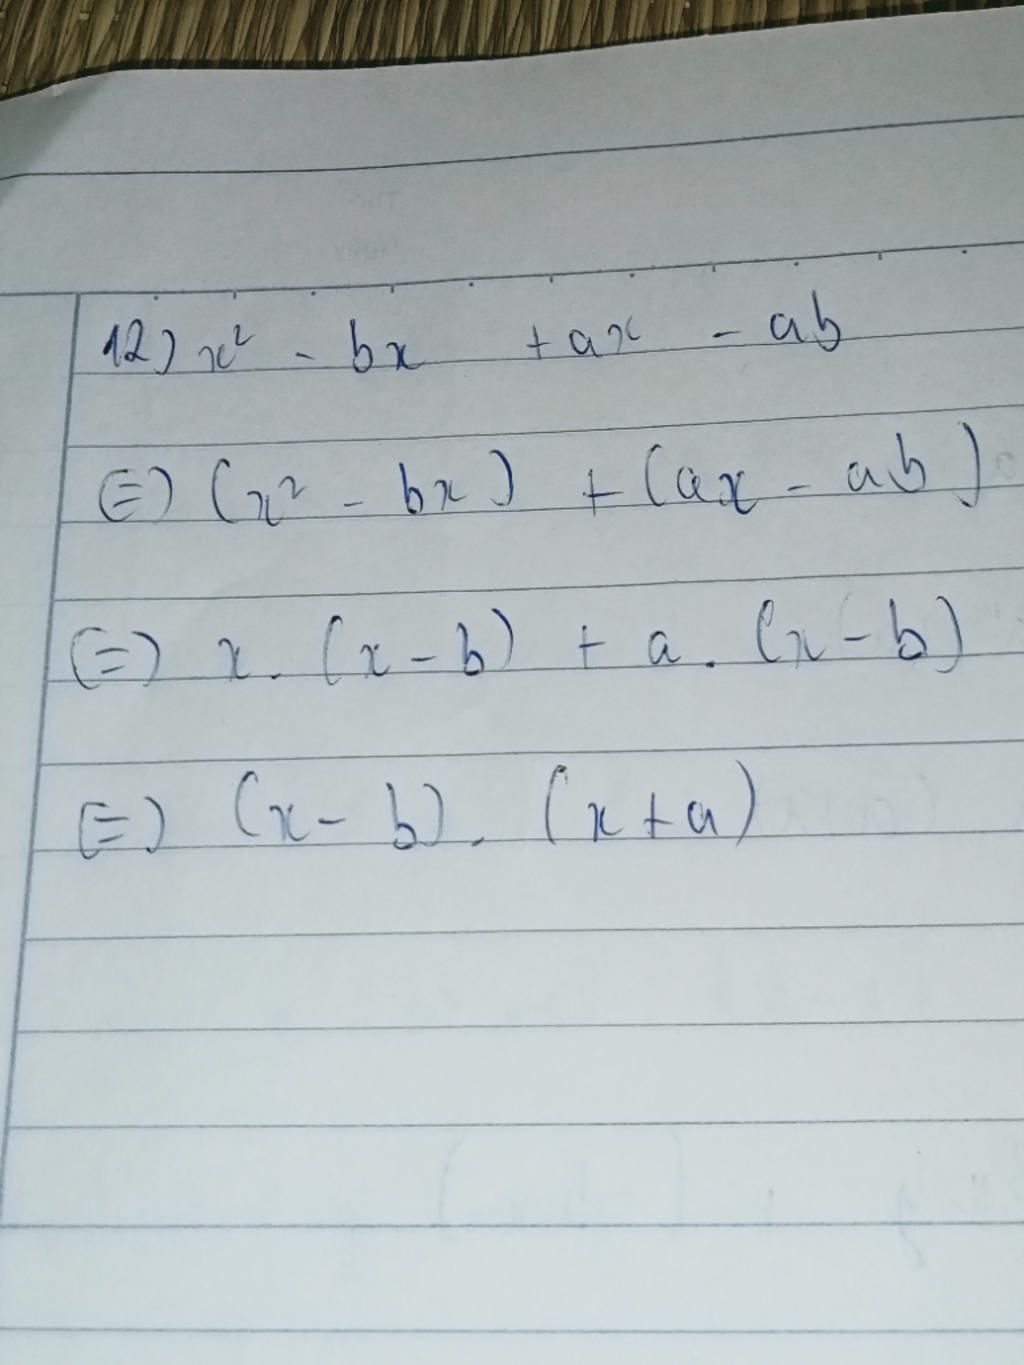 12) x² - bx + ax - ab
(=) (x² - bx) + (ax - ab)
(=) x. (x - b) + a. (x - b)
(=) (x - b). (x + a)